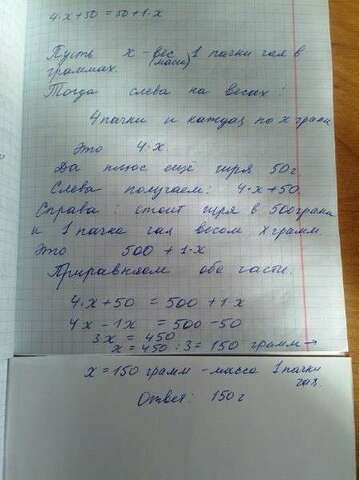 4·x+50=50+1·x
Пусть x - вес (масса) 1 пачки чая в
граммах.
Тогда слева на весах:
4 пачки и каждая по x грамм
Это 4·x.
Да плюс ещё гиря 50г
Слева получаем: 4·x+50.
Справа: стоит гиря в 500 грамм
и 1 пачка чая весом x грамм
Это 500 + 1·x
Приравняем обе части.
4·x+50 = 500+1·x
4x-1x = 500-50
3x = 450
x = 450:3 = 150 грамм→
x = 150 грамм - масса 1 пачки
чая.
Ответ: 150г